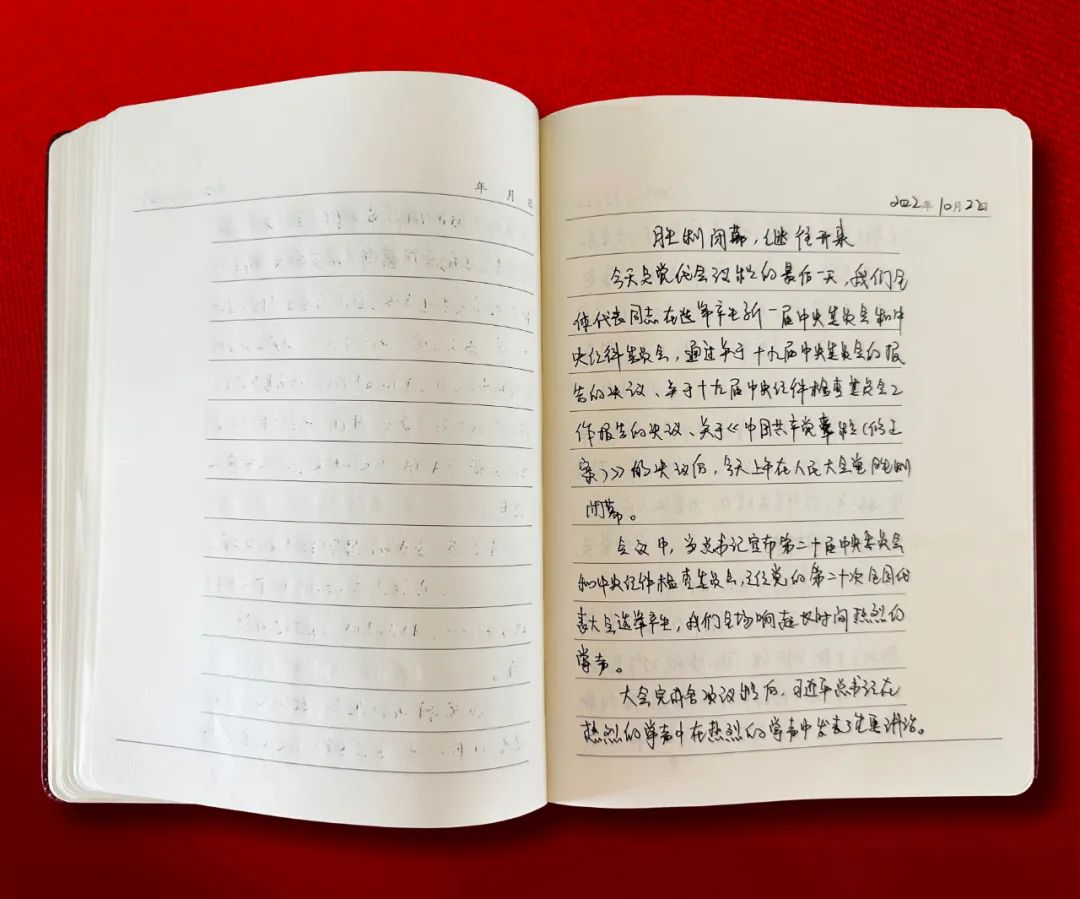 年 月 日
2022年10月22日
胜利闭幕,继往开来
今天是党代会议程的最后一天,我们全
体代表同志在选举产生新一届中央委员会和中
央纪律委员会,通过关于十九届中央委员会的报
告的决议、关于十九届中央纪律检查委员会工
作报告的决议、关于《中国共产党章程(修正
案)》的决议后,今天上午在人民大会堂胜利
闭幕。
会议中,当总书记宣布第二十届中央委员会
和中央纪律检查委员会,已经党的第二十次全国代
表大会选举产生,我们全场响起长时间热烈的
掌声。
大会完成各项议程后,习近平总书记在
热烈的掌声中在热烈的掌声中发表了重要讲话。